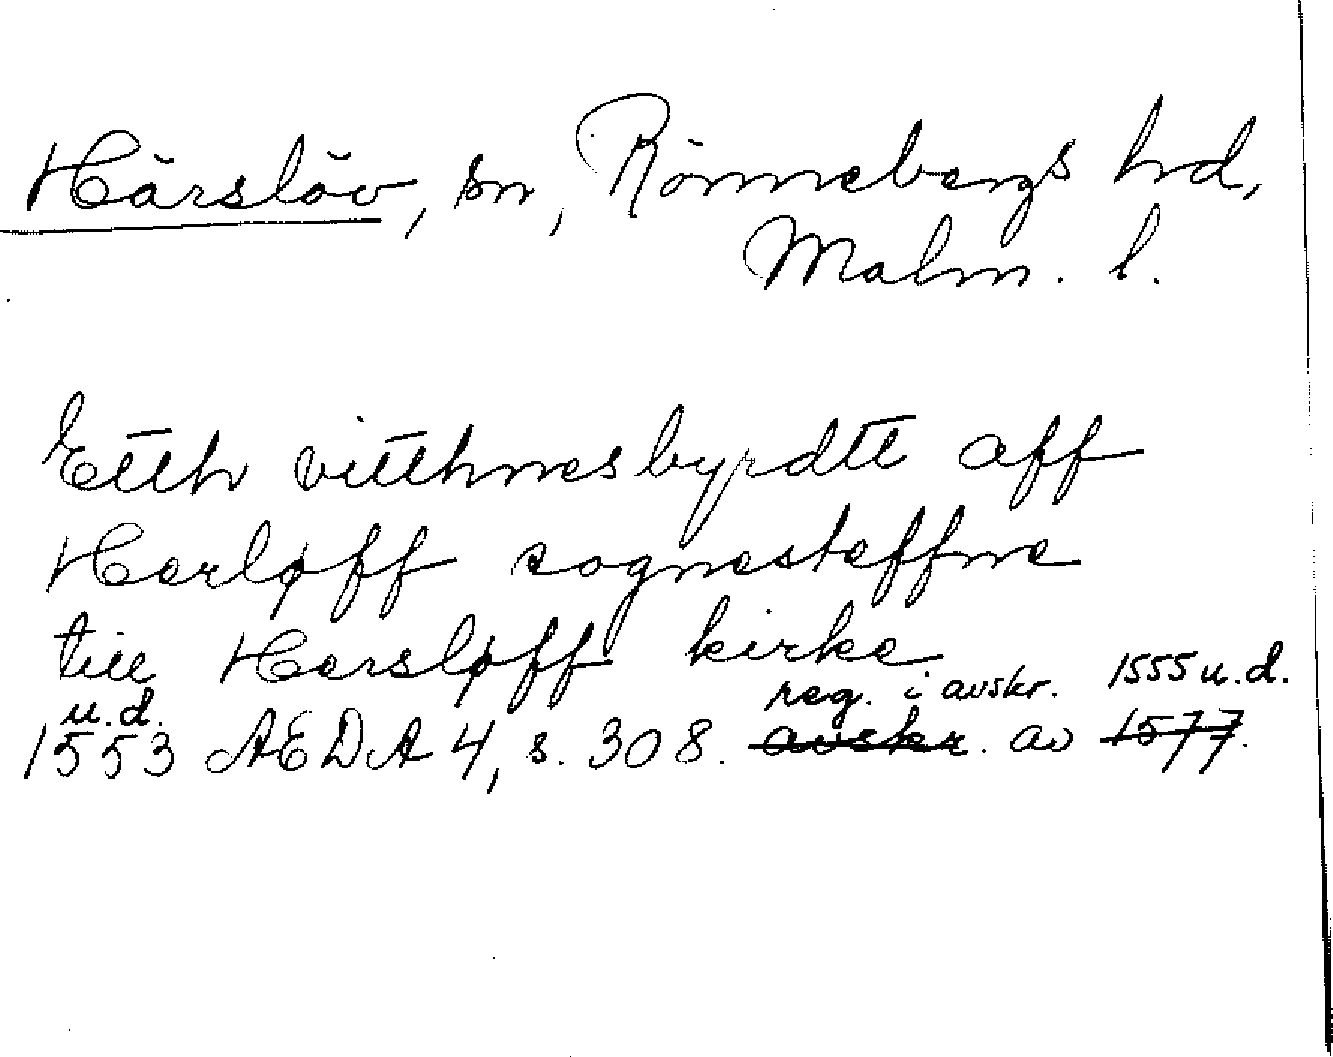 Härslöv, sn, Rönnebergs hd,
Malm. l.
Etth vitthnesbyrdtt aff
Herløff sognesteffne
till Hersløff kirke
reg. i avskr. 1555 u.d.
u.d.
1553 AEDA 4, s. 308. avskr. av 1577.